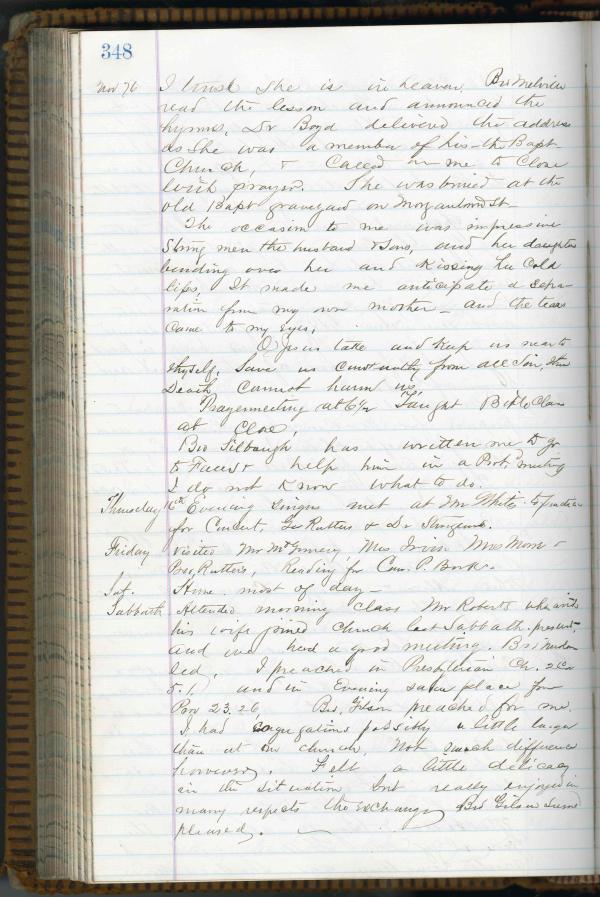 348
Nov 76 I trust she is in heaven. Bro Melvin
read the lesson and announced the
hymns, Dr Boyd delivered the address
as she was a member of his - the Bapt
Church, & called on me to close
with prayer. She was buried at the
old Bapt graveyard on Morgantown St.
The occasion to me was impressive
Strong men the husband & sons, and her daughters
bending over her and kissing her cold
lips, It made me anticipate a sepa-
ration from my own mother - and the tears
came to my eyes.
O Jesus take and keep us near to
thyself, Save us constantly from all sin, then
Death cannot harm us.
Prayermeeting at 6 1/2 Taught Bible Class
at Close,
Bro Silbaugh has written me to go
to & help him in a Prot. meeting
I do not know what to do.
Thursday 16th Evening singers met at Mr Whites to practice
for Concert, Geo Rutters & Dr
Friday Visited Mr Mrs Irvin Mrs Moore &
Bro, Rutters, Reading for Com. P. Books.
Sat. Home most of day -
Sabbath Attended morning class Mr Roberts who with
his wife joined church last Sabbath present,
and we had a good meeting. Bro
led, I preached in Presbyterian Ch. 2 Cor
5.1, and in Evening same place from
Prov 23.26 Bro, Gilson preached for me.
I had congregations possibly a little larger
than at our church, Not much difference
however. Felt a little delicacy
in the situation but really enjoyed in
many respects the exchange Bro Gilson seemed
pleased.